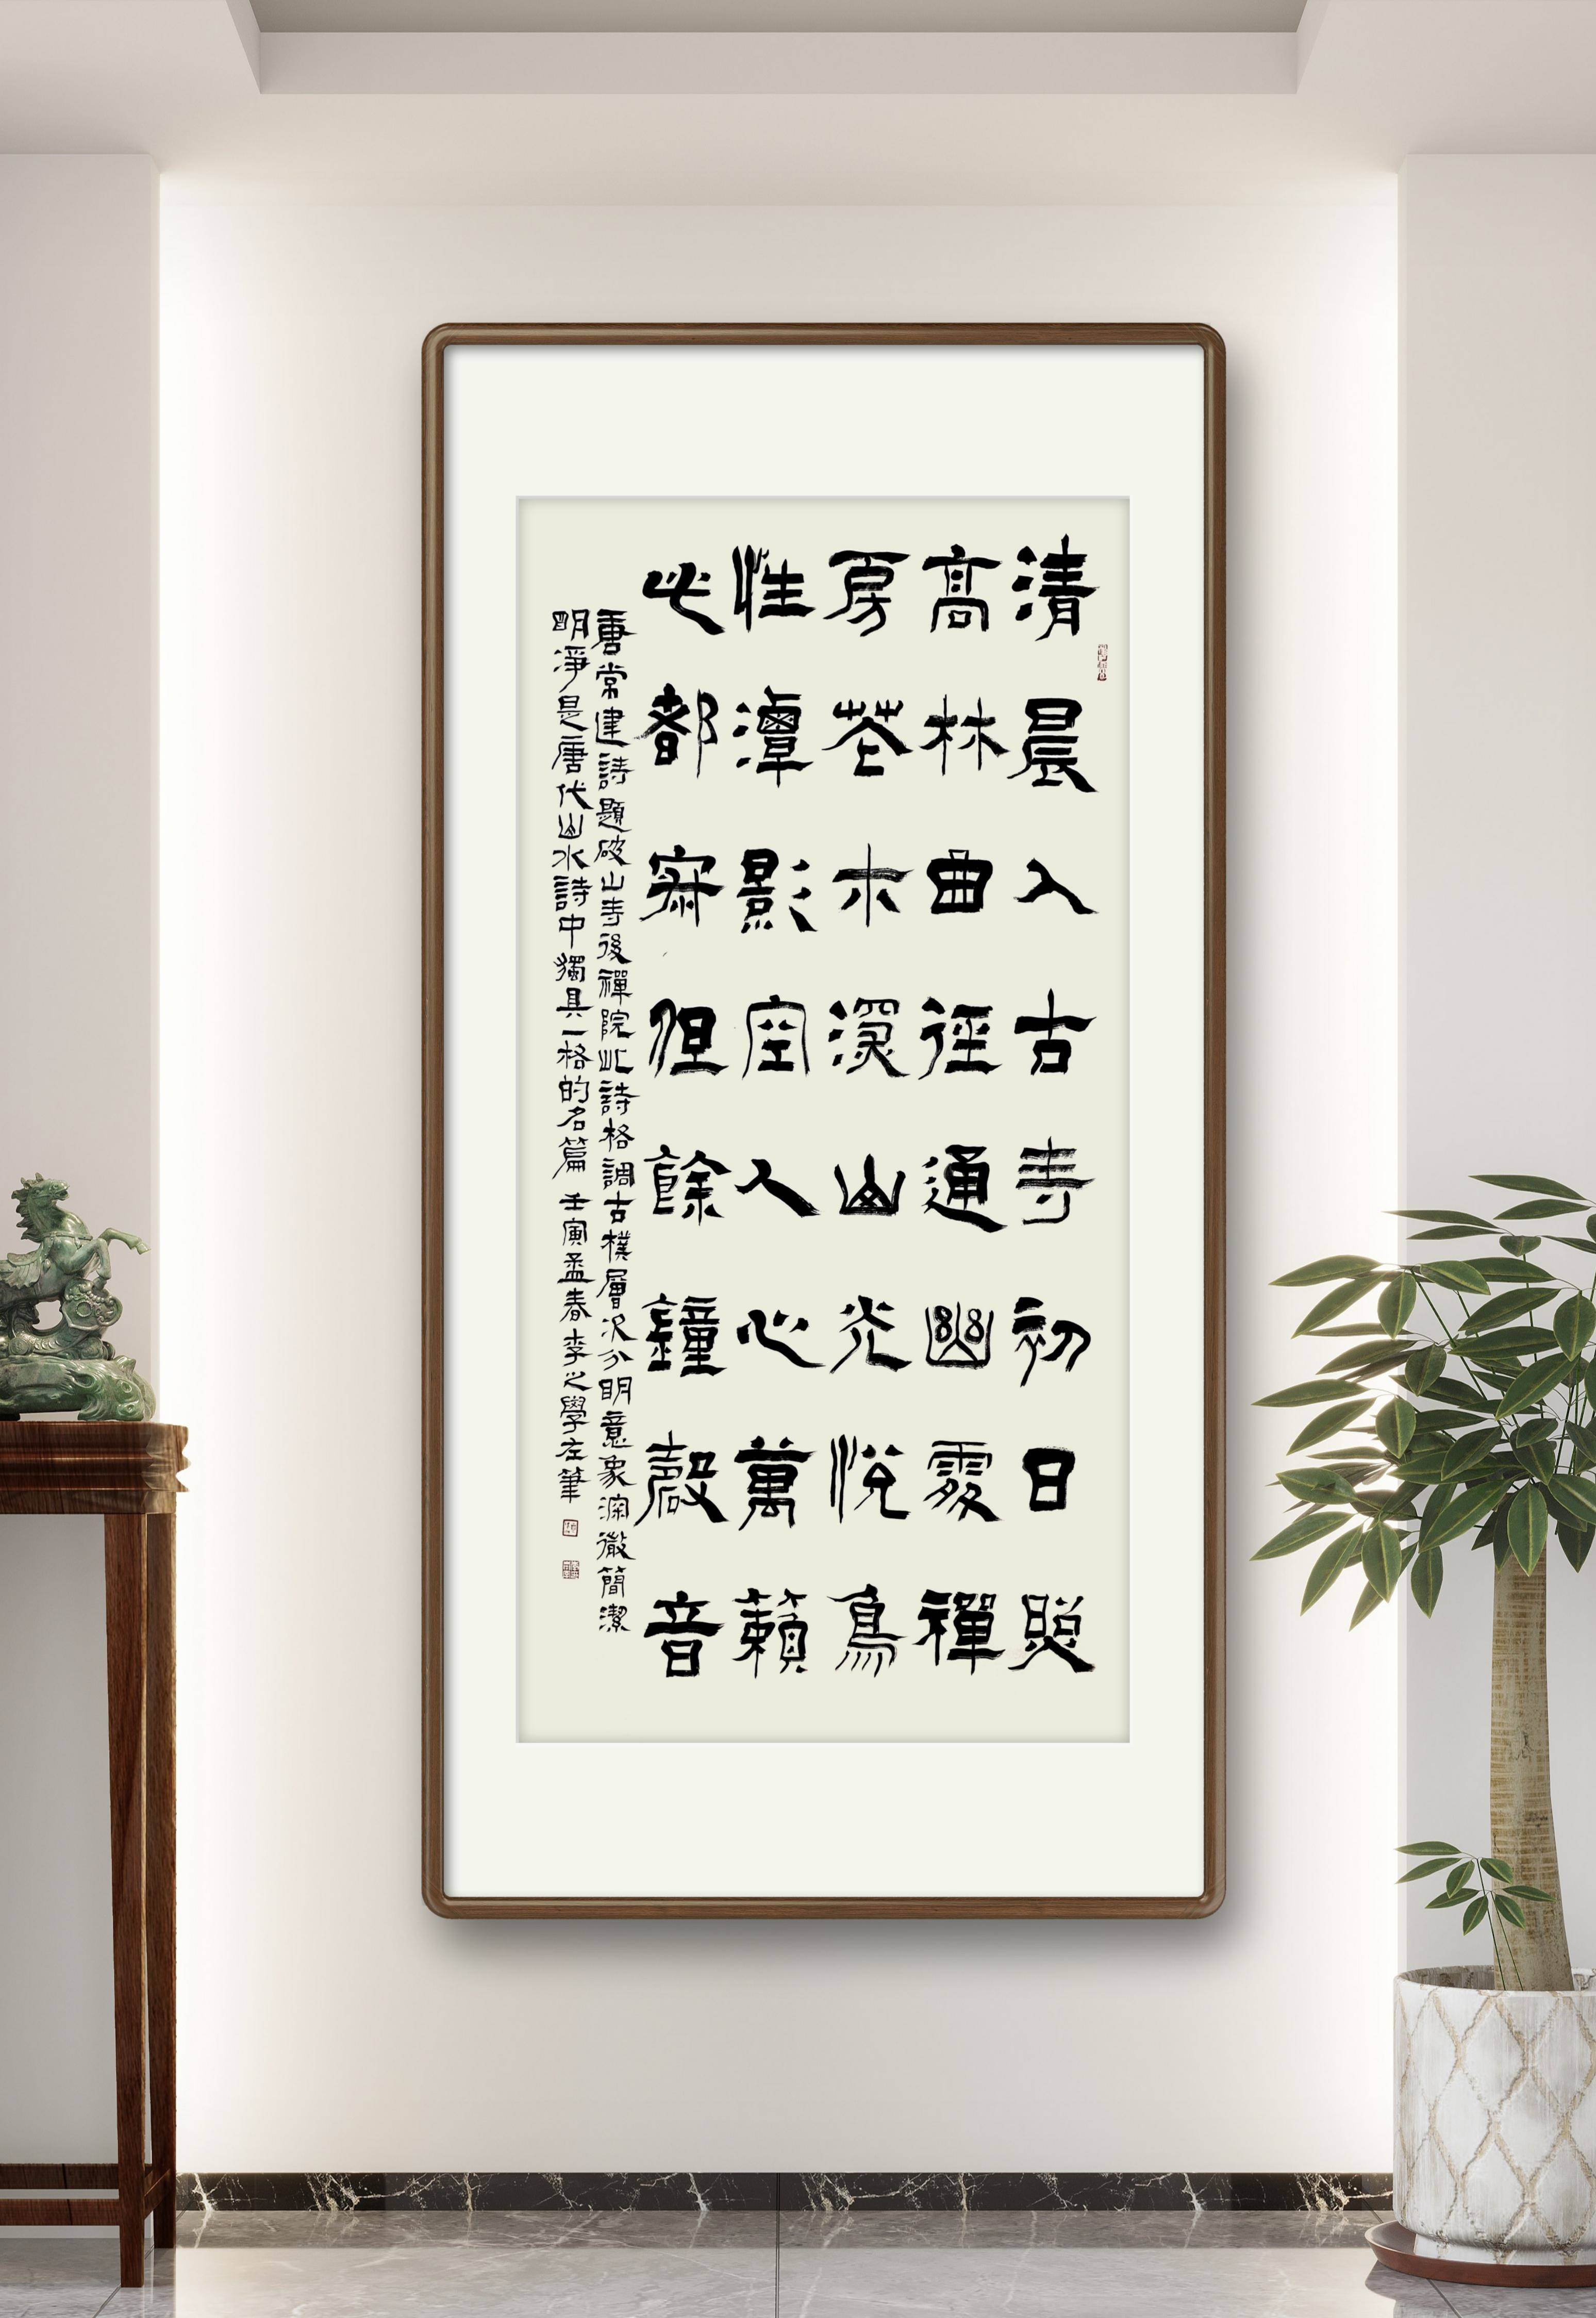 清晨入古寺初日照
高林曲徑通幽處禪
房花木深山光悅鳥
性潭影空人心萬籟
此都寂但餘鐘聲音
唐常建詩題破山寺後禪院此詩格調古樸層次分明意象深微簡潔
明淨是唐代山水詩中獨具一格的名篇 壬寅孟春李之學左筆